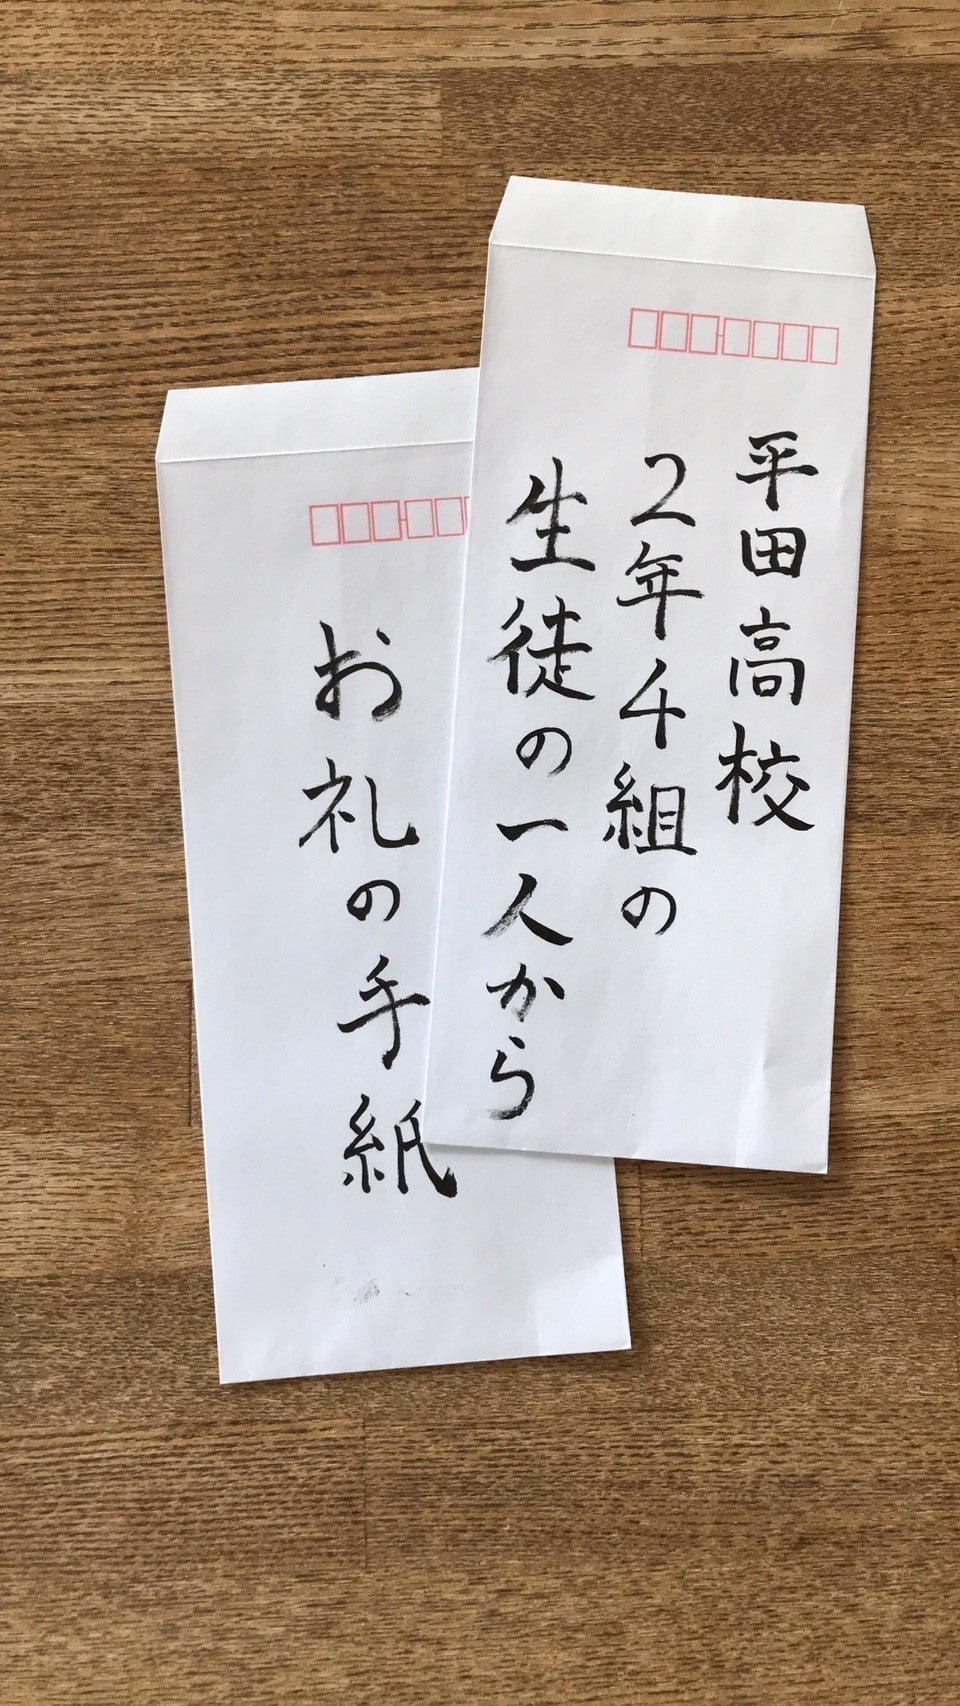 平田高校
2年4組の
生徒の一人から
お礼の手紙